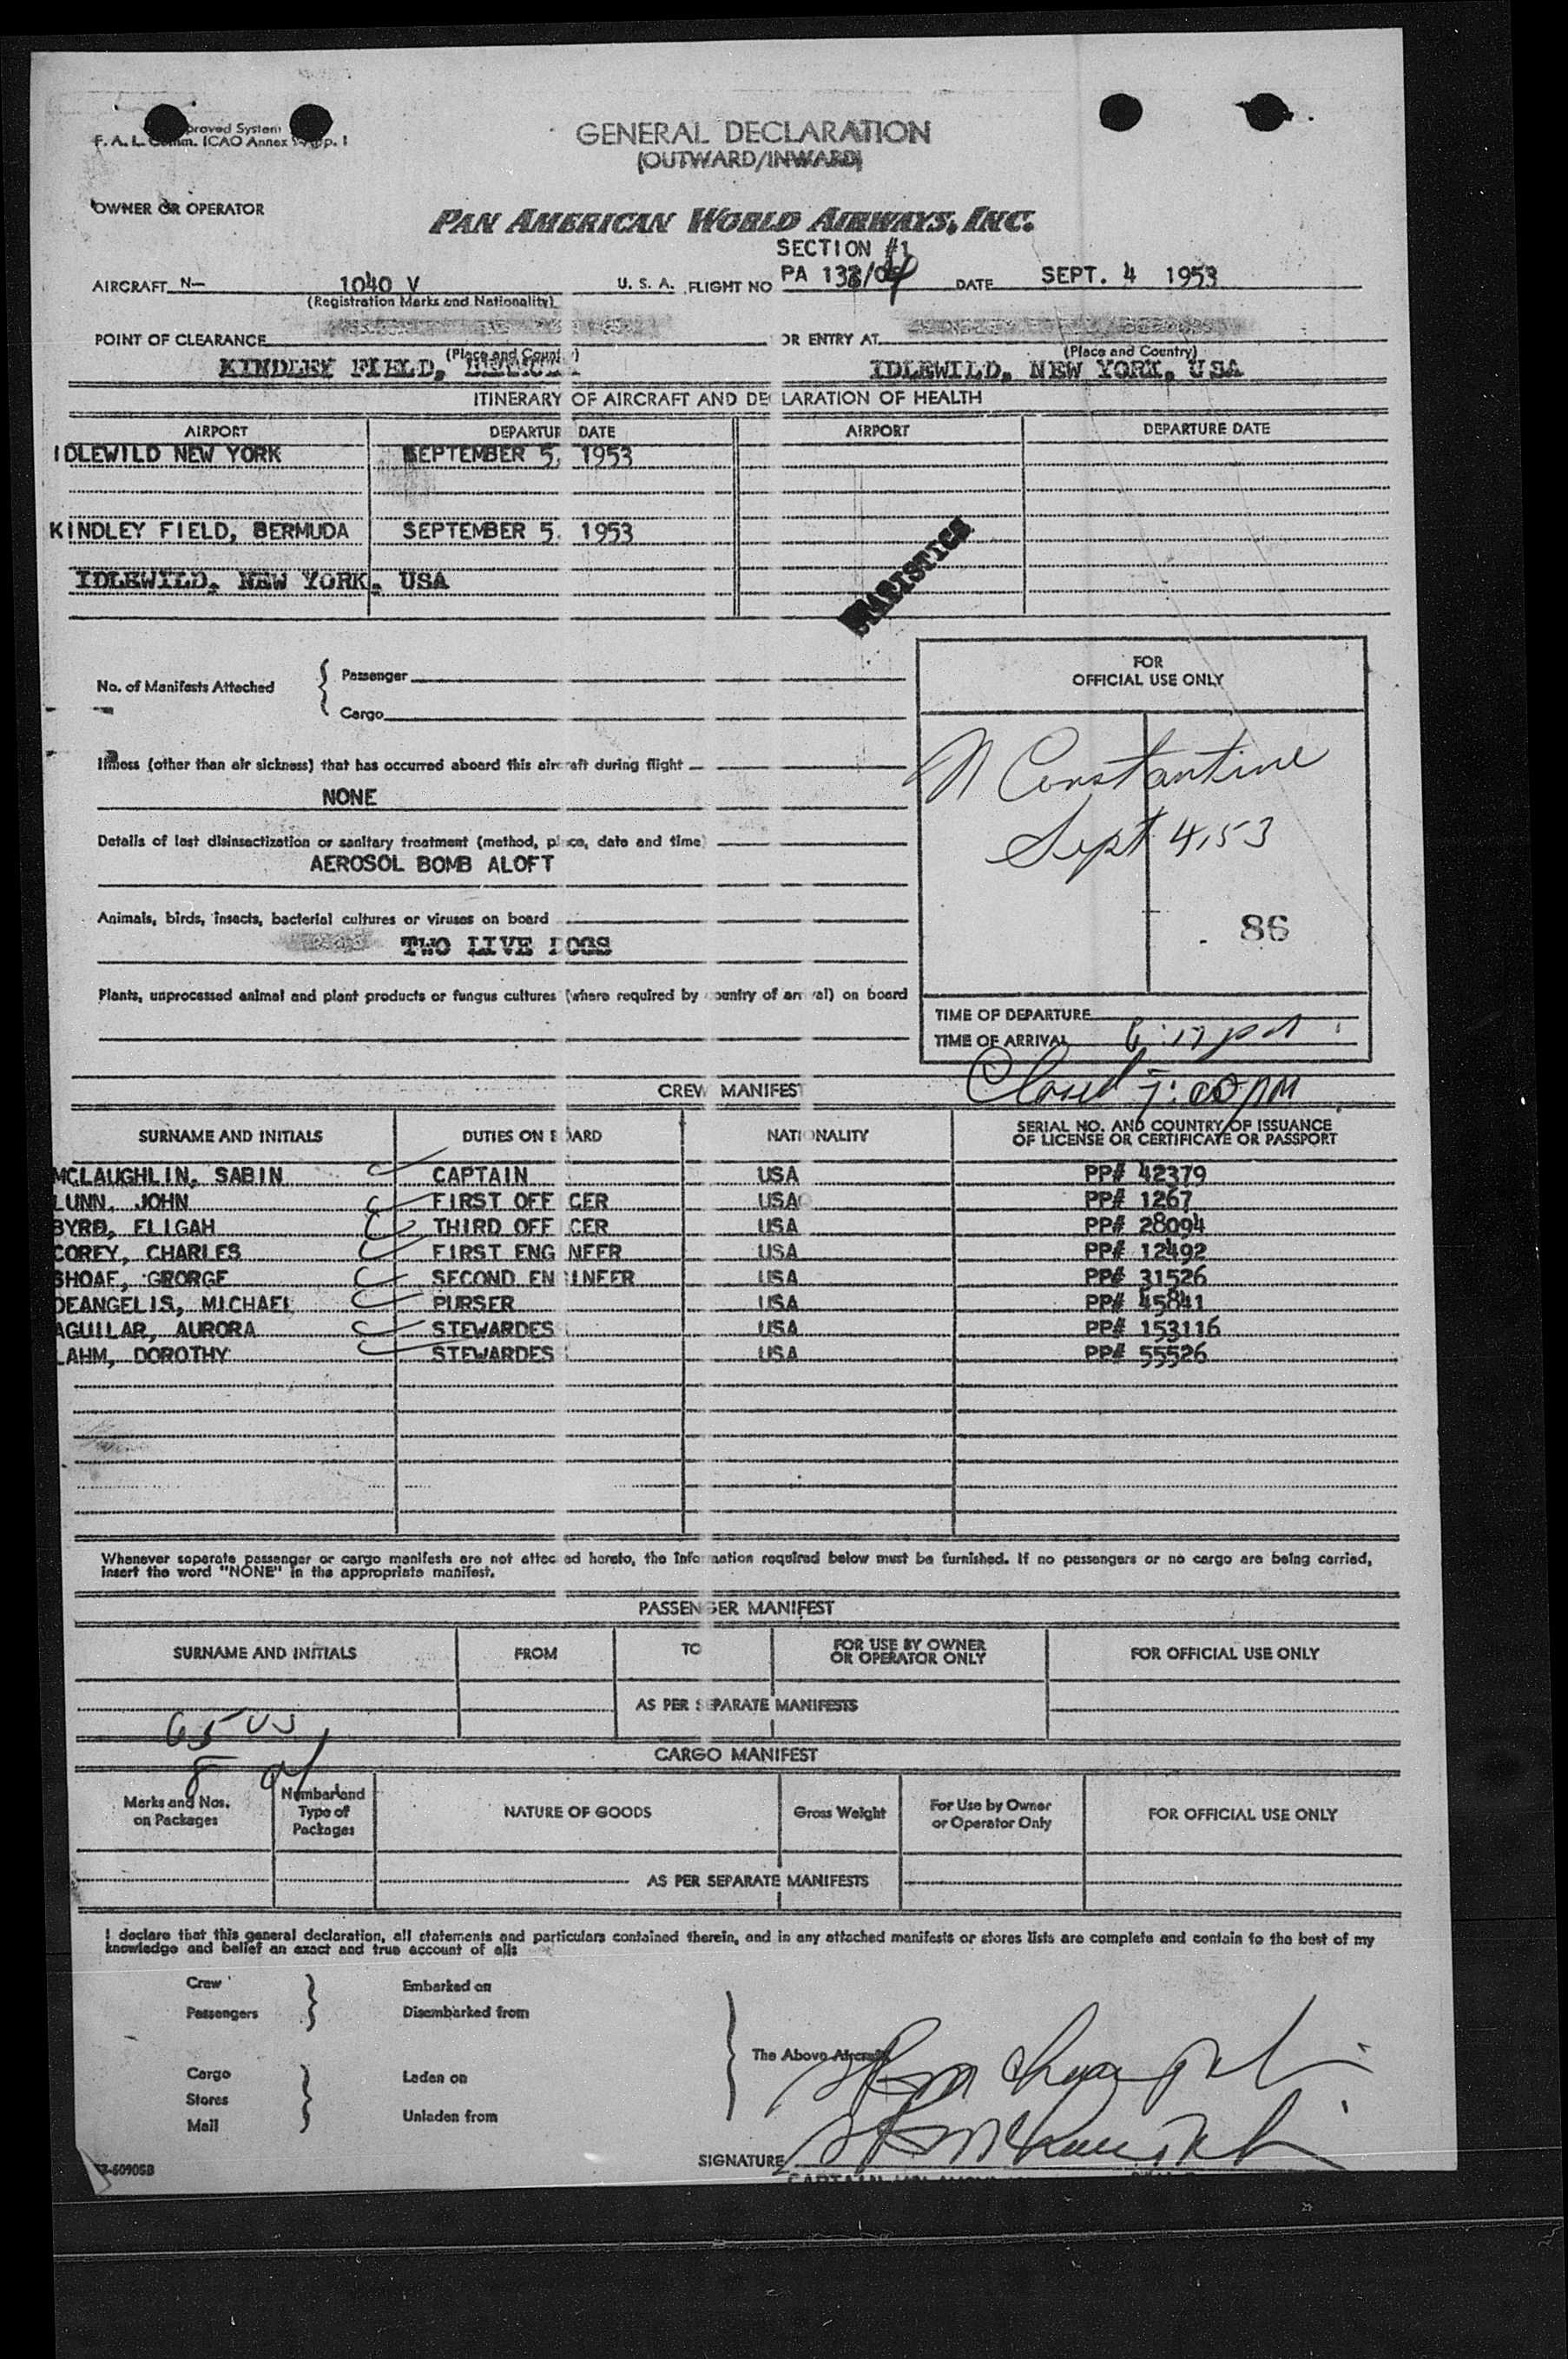 GENERAL DECLARATION
(OUTWARD/INWARD)
OWNER OR OPERATOR
PAN AMERICAN WORLD AIRWAYS, INC.
SECTION #1
AIRCRAFT N— 1040 V U. S. A. FLIGHT NO DATE SEPT. 4 1953
(Registration Marks and Nationality)
POINT OF CLEARANCE OR ENTRY AT
(Place and Country) (Place and Country)
KINDLEY FIELD, IDLEWILD, NEW YORK, USA
ITINERARY OF AIRCRAFT AND DECLARATION OF HEALTH
AIRPORT DEPARTURE DATE AIRPORT DEPARTURE DATE
IDLEWILD NEW YORK SEPTEMBER 5, 1953
KINDLEY FIELD, BERMUDA SEPTEMBER 5, 1953
IDLEWILD, NEW YORK, USA
STATISTICS
No. of Manifests Attached
Passenger
Cargo
FOR
OFFICIAL USE ONLY
N Constantine
Sept 4, 53
86
Illness (other than air sickness) that has occurred aboard this aircraft during flight
NONE
Details of last disinsectization or sanitary treatment (method, place, date and time)
AEROSOL BOMB ALOFT
Animals, birds, insects, bacterial cultures or viruses on board
TWO LIVE DOGS
Plants, unprocessed animal and plant products or fungus cultures (where required by country of arrival) on board
TIME OF DEPARTURE
TIME OF ARRIVAL 6:17 pm
Closed 7:00 PM
CREW MANIFEST
SURNAME AND INITIALS DUTIES ON BOARD NATIONALITY SERIAL NO. AND COUNTRY OF ISSUANCE
OF LICENSE OR CERTIFICATE OR PASSPORT
MCLAUGHLIN, SABIN CAPTAIN USA PP# 42379
LUNN, JOHN FIRST OFFICER USA PP# 1267
BYRD, ELIGAH THIRD OFFICER USA PP# 28094
COREY, CHARLES FIRST ENGINEER USA PP# 12492
SHOAF, GEORGE SECOND ENGINEER USA PP# 31526
DEANGELIS, MICHAEL PURSER USA PP# 45841
AGUILAR, AURORA STEWARDESS USA PP# 153116
LAHM, DOROTHY STEWARDESS USA PP# 55526
Whenever separate passenger or cargo manifests are not attached hereto, the information required below must be furnished. If no passengers or no cargo are being carried,
insert the word "NONE" in the appropriate manifest.
PASSENGER MANIFEST
SURNAME AND INITIALS FROM TO FOR USE BY OWNER
OR OPERATOR ONLY FOR OFFICIAL USE ONLY
AS PER SEPARATE MANIFESTS
65 US
CARGO MANIFEST
Marks and Nos.
on Packages
Number and
Type of
Packages
NATURE OF GOODS Gross Weight
For Use by Owner
or Operator Only
FOR OFFICIAL USE ONLY
AS PER SEPARATE MANIFESTS
I declare that this general declaration, all statements and particulars contained therein, and in any attached manifests or stores lists are complete and contain to the best of my
knowledge and belief an exact and true account of all:
Crew Embarked on
Passengers Disembarked from
The Above Aircraft
Cargo Laden on
Stores
Mail Unladen from
SIGNATURE